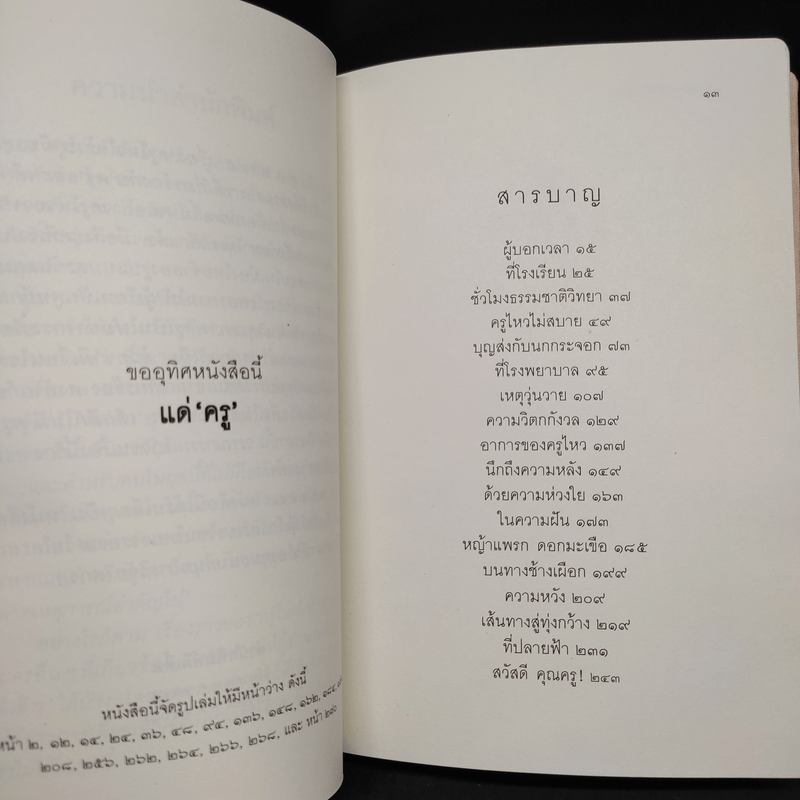 ขออุทิศหนังสือนี้
แด่ ‘ครู’
หนังสือนี้จัดรูปเล่มให้มีหน้าว่าง ดังนี้
หน้า ๒, ๑๒, ๑๔, ๒๔, ๓๖, ๔๘, ๙๔, ๑๓๖, ๑๔๘, ๑๖๒,
๒๐๘, ๒๕๖, ๒๖๒, ๒๖๔, ๒๖๖, ๒๖๘, และ หน้า
๑๓
สารบาญ
ผู้บอกเวลา ๑๕
ที่โรงเรียน ๒๕
ชั่วโมงธรรมชาติวิทยา ๓๗
ครูไหวไม่สบาย ๔๙
บุญส่งกับนกกระจอก ๗๓
ที่โรงพยาบาล ๙๕
เหตุวุ่นวาย ๑๐๗
ความวิตกกังวล ๑๒๙
อาการของครูไหว ๑๓๗
นึกถึงความหลัง ๑๔๙
ด้วยความห่วงใย ๑๖๓
ในความฝัน ๑๗๓
หญ้าแพรก ดอกมะเขือ ๑๘๕
บนทางช้างเผือก ๑๙๙
ความหวัง ๒๐๙
เส้นทางสู่ทุ่งกว้าง ๒๑๙
ที่ปลายฟ้า ๒๓๑
สวัสดี คุณครู! ๒๔๓